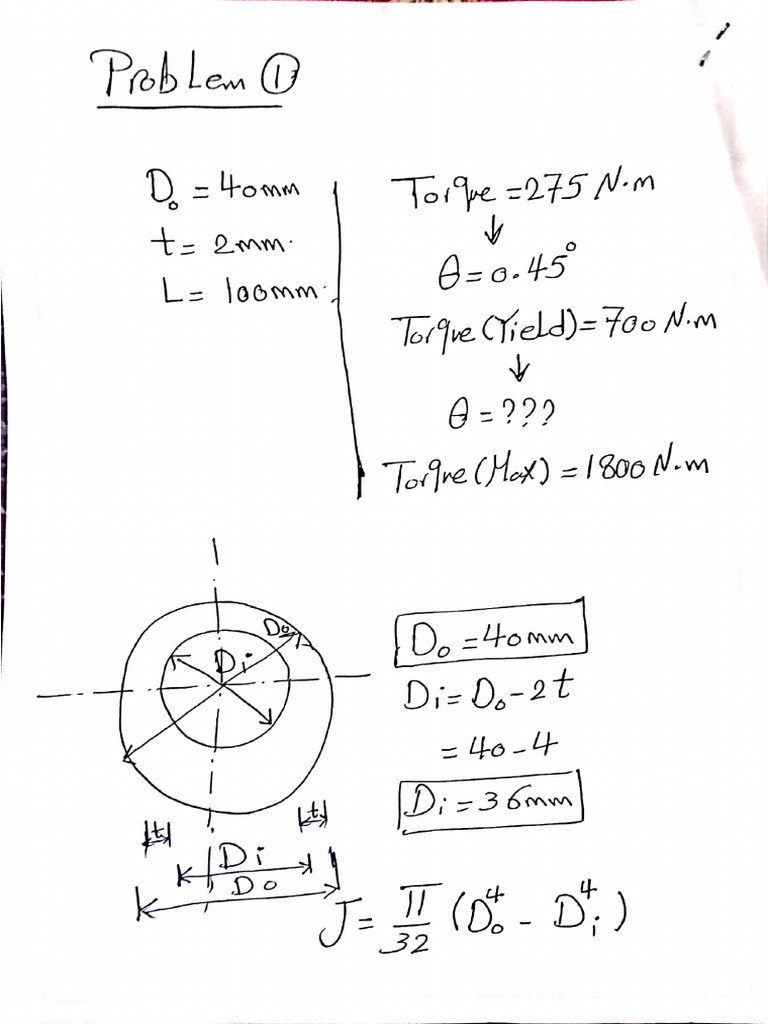 Problem ①
D₀ = 40mm
t = 2mm.
L = 100mm.
Torque = 275 N.m
↓
θ = 0.45°
Torque (Yield) = 700 N.m
↓
θ = ???
Torque (Max) = 1800 N.m
D₀
Di
t
t
Di
Do
D₀ = 40mm
Di = D₀ - 2t
= 40 - 4
Di = 36mm
J = π/32 (D₀⁴ - Di⁴)